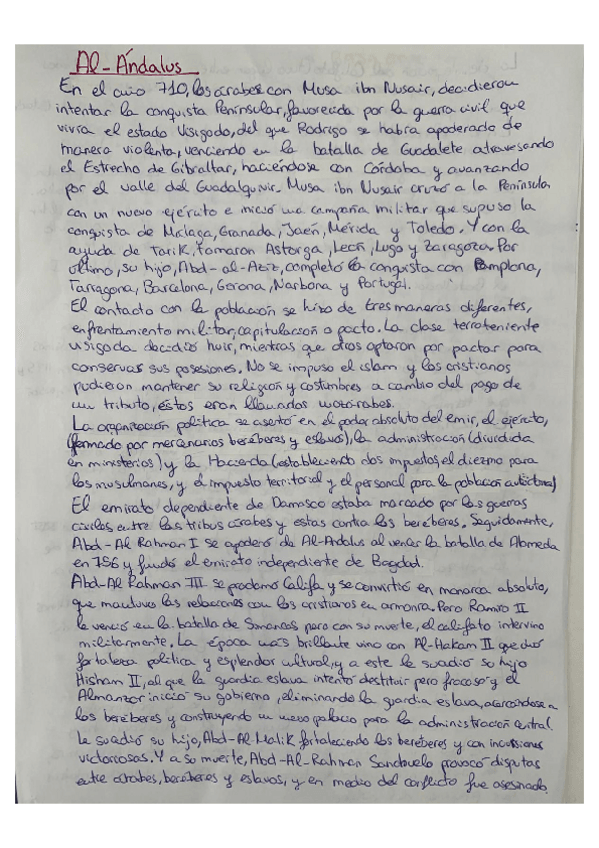 Al-Ándalus
En el año 710, los árabes con Musa ibn Nusair, decidieron
intentar la conquista Peninsular, favorecida por la guerra civil que
vivía el estado Visigodo, del que Rodrigo se había apoderado de
manera violenta, venciendo en la batalla de Guadalete atravesando
el Estrecho de Gibraltar, haciéndose con Córdoba y avanzando
por el valle del Guadalquivir. Musa ibn Nusair cruzó a la Península
con un nuevo ejército e inició una campaña militar que supuso la
conquista de Málaga, Granada, Jaén, Mérida y Toledo. Y con la
ayuda de Tarik, tomaron Astorga, León, Lugo y Zaragoza. Por
último, su hijo, Abd-al-Aziz, completó la conquista con Pamplona,
Tarragona, Barcelona, Gerona, Narbona y Portugal.
El contacto con la población se hizo de tres maneras diferentes,
enfrentamiento militar, capitulación o pacto. La clase terrateniente
visigoda decidió huir, mientras que otros optaron por pactar para
conservar sus posesiones. No se impuso el islam y los cristianos
pudieron mantener su religión y costumbres a cambio del pago de
un tributo, éstos eran llamados mozárabes.
La organización política se asentó en el poder absoluto del emir, el ejército,
(formado por mercenarios beréberes y eslavos), la administración (dividida
en ministerios) y la Hacienda (estableciendo dos impuestos, el diezmo para
los musulmanes, y el impuesto territorial y el personal para la población autóctona)
El emirato dependiente de Damasco estaba marcado por las guerras
civiles entre las tribus árabes y estas contra los beréberes. Seguidamente,
Abd-Al Rahman I se apoderó de Al-Ándalus al vencer la batalla de Alameda
en 756 y fundó el emirato independiente de Bagdad.
Abd-Al Rahman III se proclamó Califa y se convirtió en monarca absoluto,
que mantuvo las relaciones con los cristianos en armonía. Pero Ramiro II
le venció en la batalla de Simancas pero con su muerte, el califato intervino
militarmente. La época más brillante vino con Al-Hakam II que dió
fortaleza política y esplendor cultural, y a este le suadió su hijo
Hisham II, al que la guardia eslava intentó destituir pero fracasó y el
Almanzor inició su gobierno, eliminando la guardia eslava, acercándose a
los beréberes y construyendo un nuevo palacio para la administración central.
Le suadió su hijo, Abd-Al Malik fortaleciendo los beréberes y con incursiones
victoriosas. Y a su muerte, Abd-Al-Rahman Sanchuelo provocó disputas
entre árabes, beréberes y eslavos, y en medio del conflicto fue asesinado.